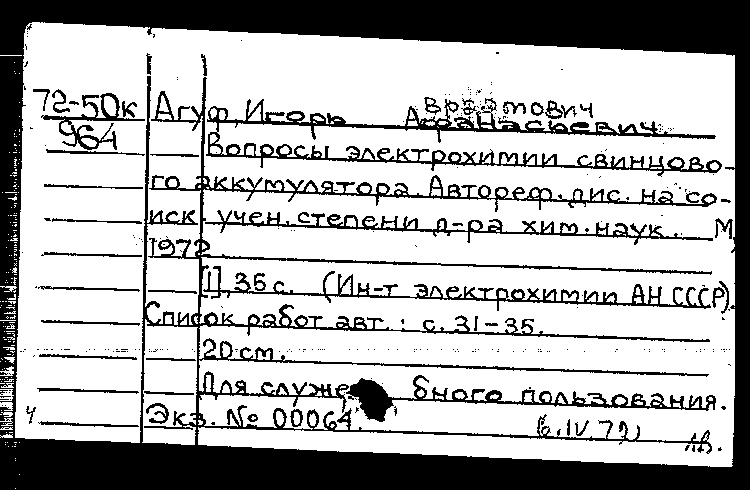 72-50к Агуф, Игорь Афанасьевич
964
Вопросы электрохимии свинцово-
го аккумулятора. Автореф. дис. на со-
иск. учен. степени д-ра хим. наук. М,
1972
[I], 35 с. (Ин-т электрохимии АН СССР).
Список работ авт.: с. 31-35.
20 см.
Для служебного пользования.
Экз. № 00064.